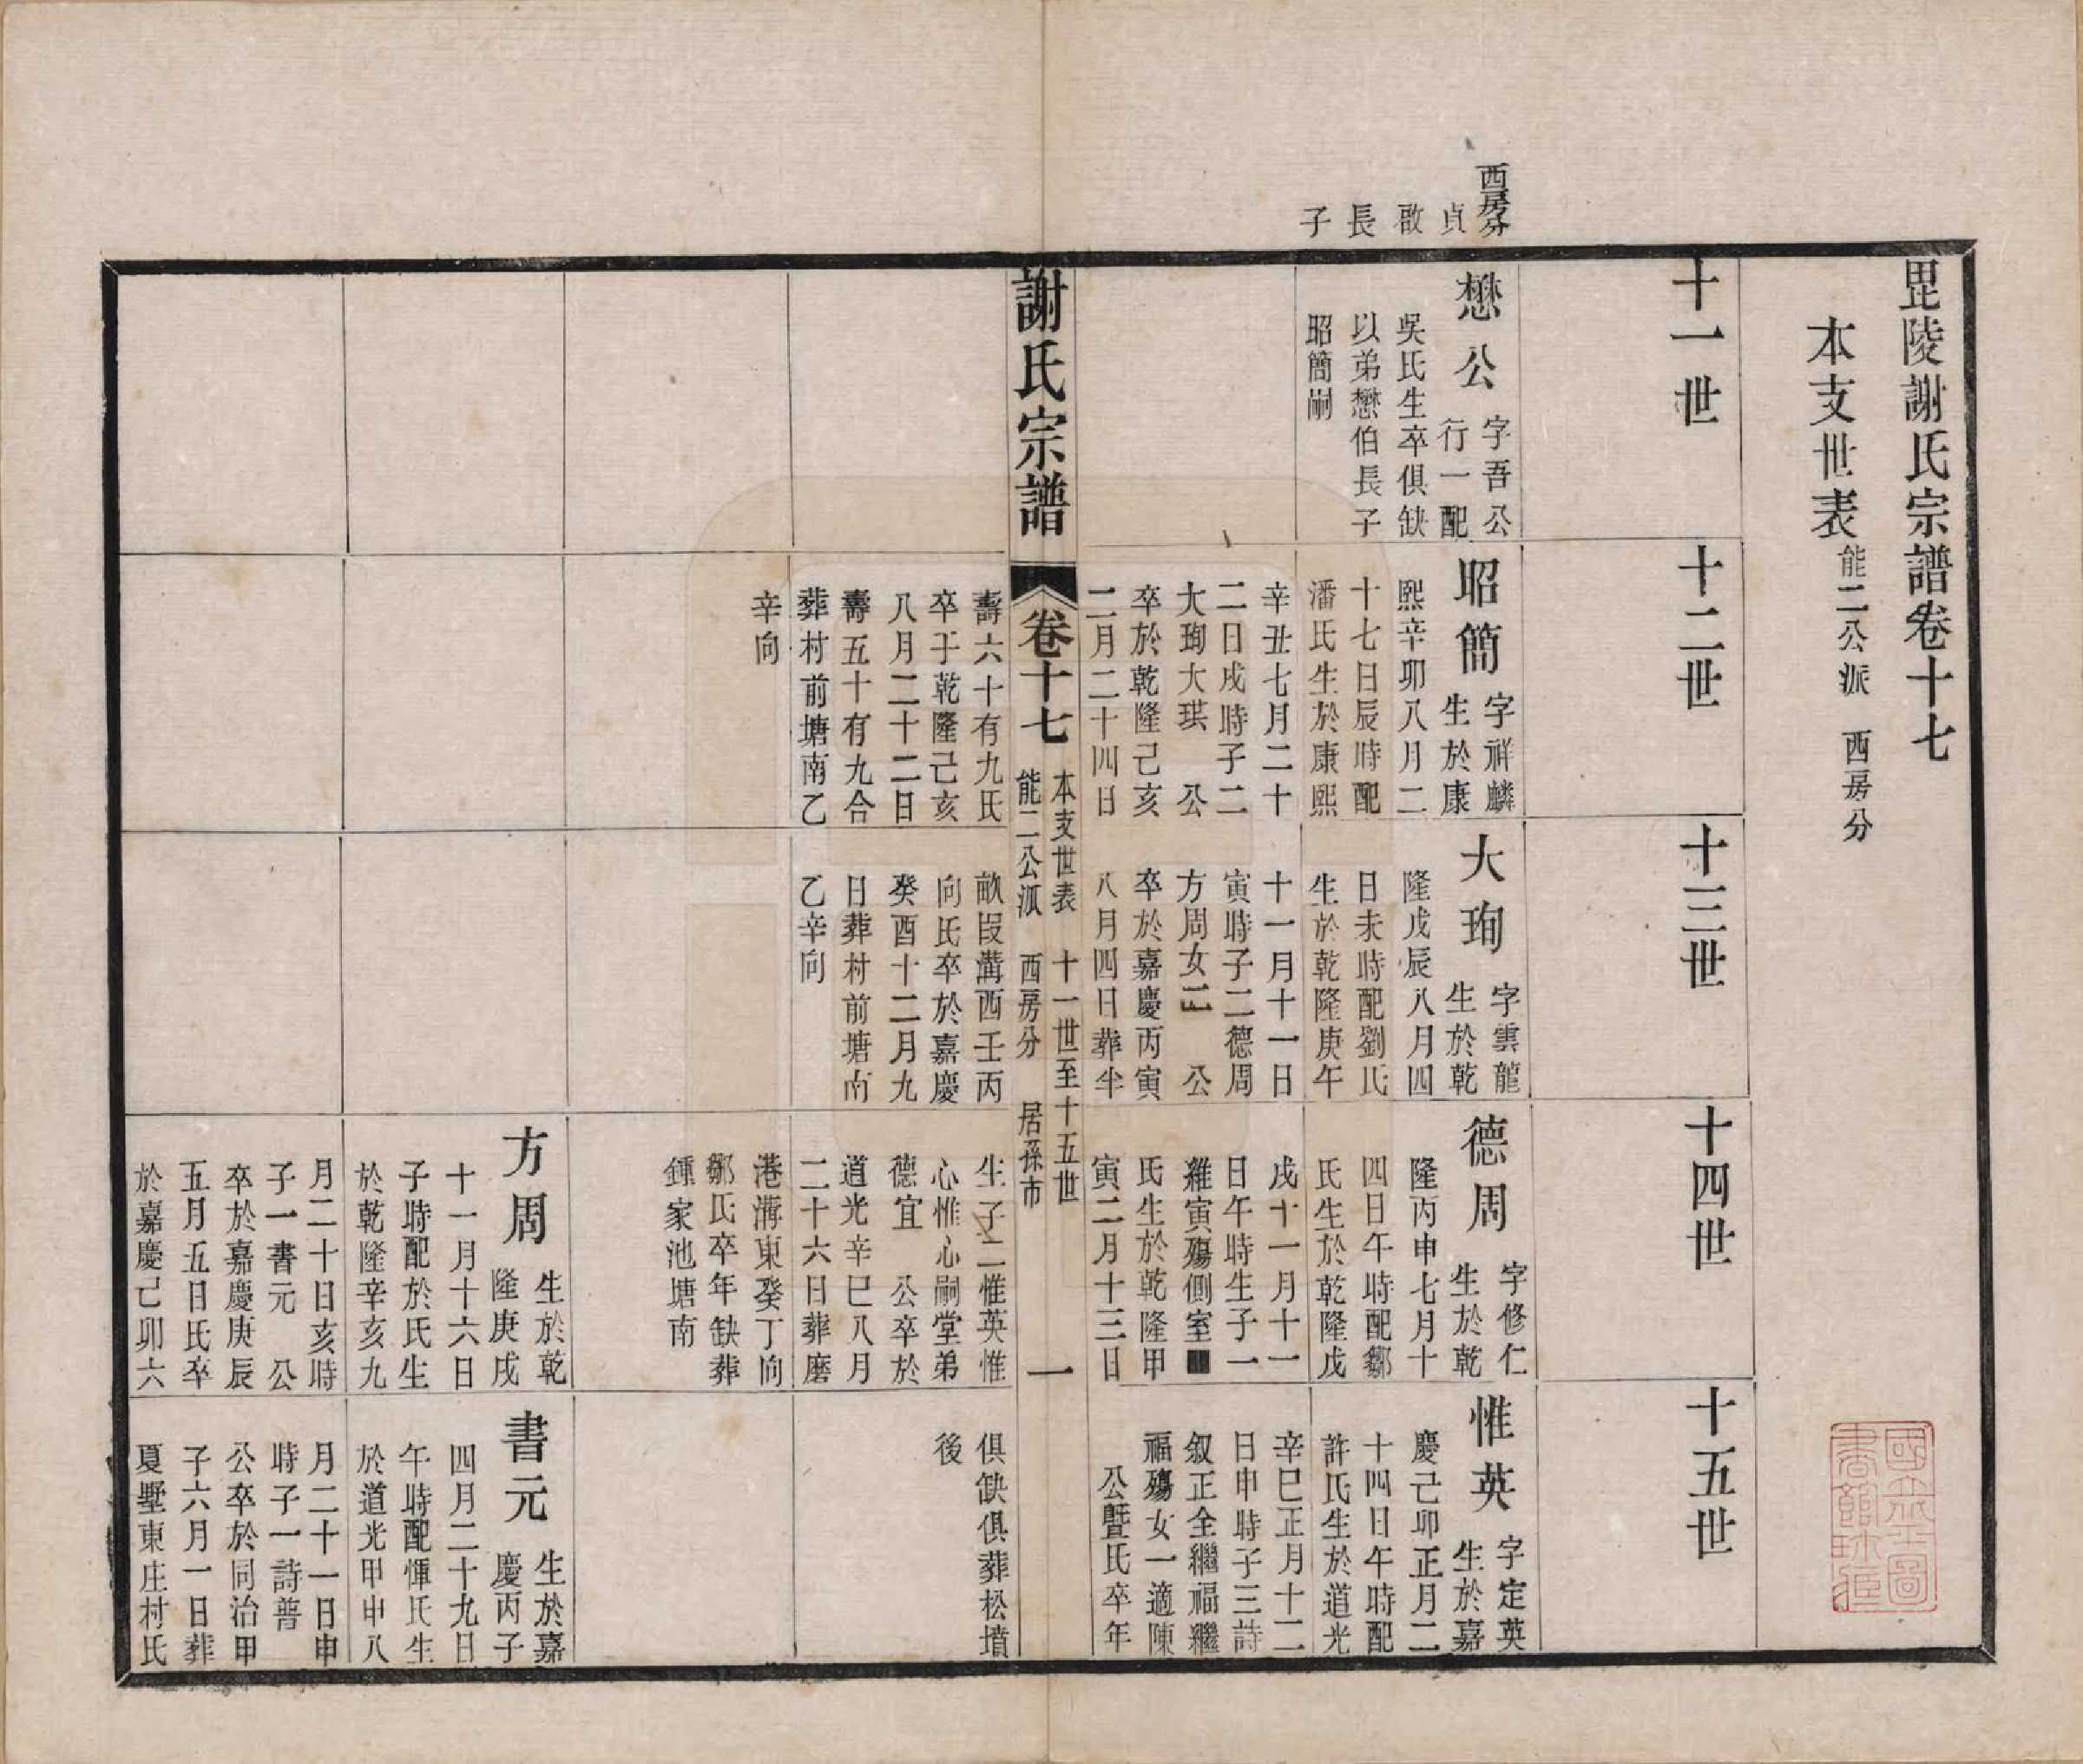 毘陵謝氏宗譜卷十七
本支世表能二公派 西房分
十一世
十二世
十三世
十四世
十五世
西房分
貞
啟
長
子
懋公
字吾公
行一配
吳氏生卒俱缺
以弟懋伯長子
昭簡嗣
昭簡
字祥麟
生於康
熙辛卯八月二
十七日辰時配
潘氏生於康熙
辛丑七月二十
二日戌時子二
大珣大琪 公
卒於乾隆己亥
二月二十四日
壽六十有九氏
卒于乾隆己亥
八月二十二日
壽五十有九合
葬村前塘南乙
辛向
大珣
字雲龍
生於乾
隆戊辰八月四
日未時配劉氏
生於乾隆庚午
十一月十一日
寅時子二德周
方周女二 公
卒於嘉慶丙寅
八月四日葬半
畝段溝西壬丙
向氏卒於嘉慶
癸酉十二月九
日葬村前塘南
乙辛向
德周
字修仁
生於乾
隆丙申七月十
四日午時配鄒
氏生於乾隆戊
戌十一月十一
日午時生子一
雞寅殤側室
氏生於乾隆甲
寅二月十三日
生子二惟英惟
心惟心嗣堂弟
德宜 公卒於
道光辛巳八月
二十六日葬磨
港溝東癸丁向
鄒氏卒年缺葬
鍾家池塘南
惟英
字定英
生於嘉
慶己卯正月二
十四日午時配
許氏生於道光
辛巳正月十二
日申時子三詩
叙正全繼福繼
福殤女一適陳
公暨氏卒年
俱缺俱葬松墳
後
謝氏宗譜
卷十七
本支世表 十一世至十五世
能二公派 西房分 居孫市
一
方周
生於乾
隆庚戌
十一月十六日
子時配於氏生
於乾隆辛亥九
月二十日亥時
子一書元 公
卒於嘉慶庚辰
五月五日氏卒
於嘉慶己卯六
書元
生於嘉
慶丙子
四月二十九日
午時配惲氏生
於道光甲申八
月二十一日申
時子一詩普
公卒於同治甲
子六月一日葬
夏墅東庄村氏
國立北平圖
書館珍藏